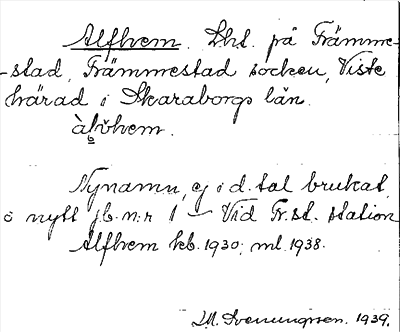 Alfhem. Lht. på Främme-
-stad, Främmestad socken, Viste
härad i Skaraborgs län.
àlvhem.
Nynamn, ej i d. tal brukat,
å nytt jb.n:r 1 — Vid Fr.st. station
Alfhem kb. 1930; ml. 1938.
M. Svenungsson. 1939.